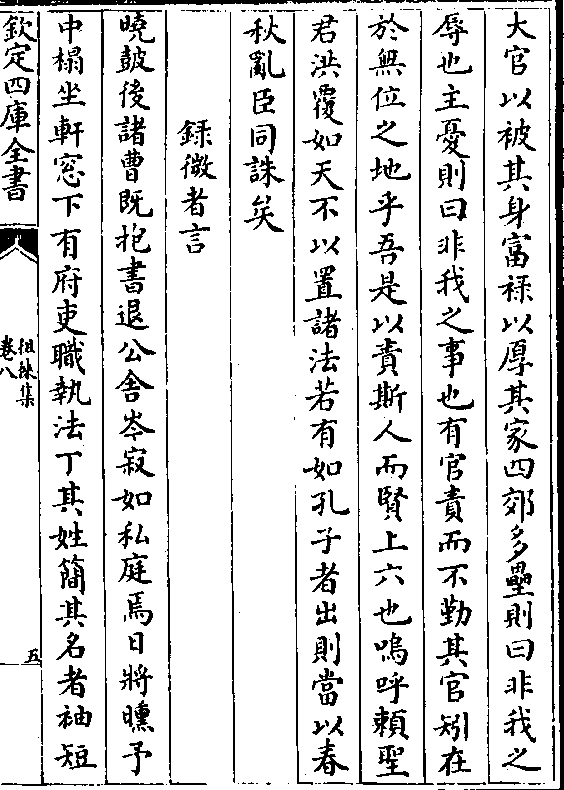 大官以被其身富祿以厚其家四郊多壘則曰非我之
辱也主憂則曰非我之事也有官責而不勤其官矧在
於無位之地乎吾是以責斯人而賢上六也嗚呼賴聖
君洪覆如天不以置諸法若有如孔子者出則當以春
秋亂臣同誅矣
録微者言
曉鼓後諸曹既抱書退公舍岑寂如私庭焉日將曛予
中榻坐軒窓下有府吏職執法丁其姓簡其名者袖短
欽定四庫全書
祖徠集
卷八
五